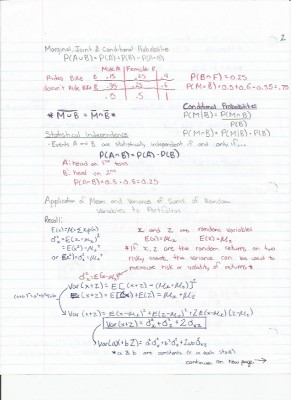 2
Marginal, Joint & Conditional Probabilities
P(A∪B) = P(A) + P(B) - P(A∩B)
Male M Female F
Rides Bike B .15 .25 .4
doesn't Ride Bike B̅ .35 .25 .6
.5 .5 1
P(B∩F) = 0.25
P(M∪B̅) = 0.5+0.6-0.35 = .75
* M∪B = M̅∩B̅ *
Conditional Probabilities
P(M|B) = P(M∩B)
P(B)
P(M∩B) = P(M|B)·P(B)
Statistical Independence
- Events A & B are statistically independent if and only if...
P(A∩B) = P(A)·P(B)
A: head on 1st toss
B: head on 2nd
P(A∩B) = 0.5 · 0.5 = 0.25
Application of Mean and Variance of Sums of Random
Variables to Portfolios
Recall:
x and z are random variables
E(x) = μx E(z) = μz
* If x, z are the random returns on two
risky assets, the variance can be used to
measure risk or volatility of returns *
Var(x+z) = E[(x+z) - (μx+μz)]²
E(x+z) = E(x) + E(z) = μx + μz
Var(x+z) = E(x-μx)² + E(z-μz)² + 2E(x-μx)(z-μz)
Var(x+z) = σ²x + σ²z + 2σxz
* a & b are constants
continues on new page. →